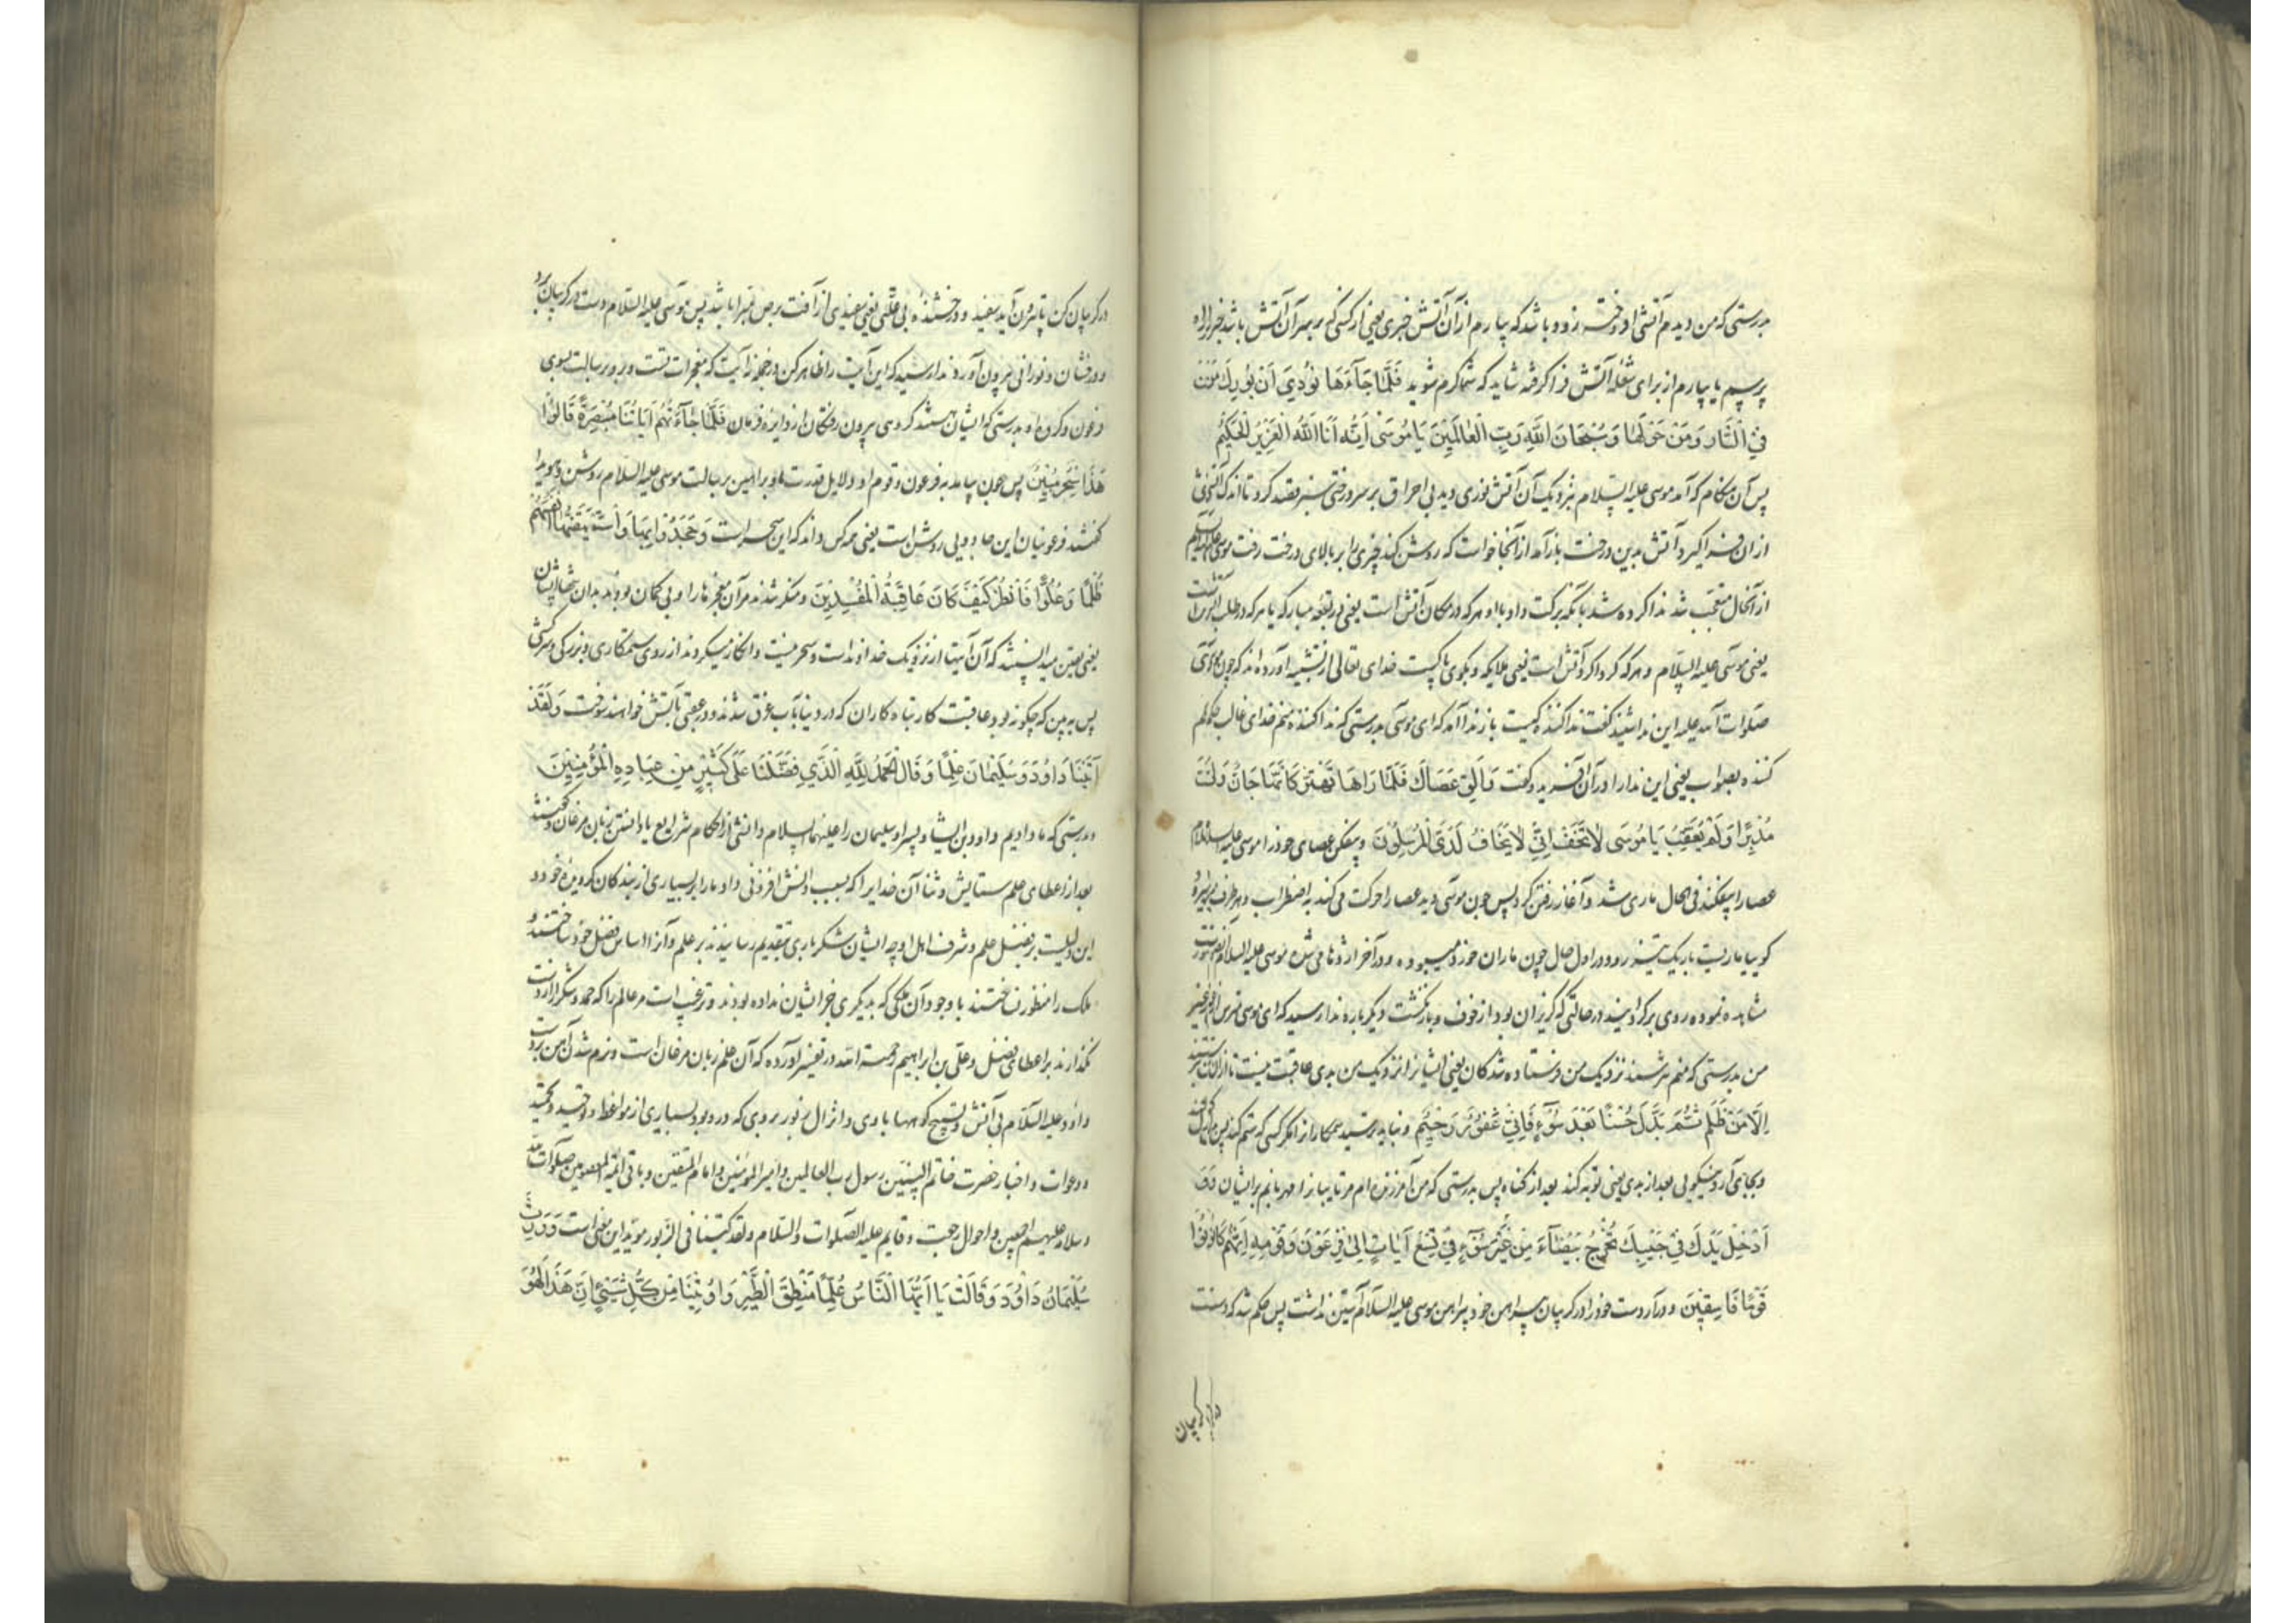 بدرستی که من دیدم آتشی افروخته زود باشد که بیارم از آن آتش خبری یعنی از کسی که بر سر آن آتش باشد خبر راه
پرسم یا بیارم از برای شعله آتش فرا گرفته شاید که شما گرم شوید فَلَمَّا جَآءَهَا نُودِيَ اَنْ بُورِكَ مَنْ
فِي النَّارِ وَمَنْ حَوْلَهَا وَسُبْحَانَ اللَّهِ رَبِّ الْعَالَمِينَ يَا مُوسَى اِنَّهُ اَنَا اللَّهُ الْعَزِيزُ الْحَكِيمُ
پس آن هنگام که آمد موسی علیه السلام بنزدیک آن آتش نوری دید بی احراق بر سر درختی سبز قصد کرد تا اندک آتشی
از ان فرا گیرد آتش بدین درخت باز آمد از آنجا خواست که روشن کند چیزی را بر بالای درخت رفت موسی علیه السلام
از آنحال متعجب شد ندا کرده شد بآنکه برکت داد بااو هر که در مکان آتش است یعنی در بقعه مبارکه یا هر که در طلب آتش است
یعنی موسی علیه السلام و هر که گرداگرد آتش است یعنی ملایکه و بگوی پاکست خدای تعالی از تشبیه آورده اند که چون موسی
صلوات الله علیه این ندا شنید گفت ندا کننده کیست باز ندا آمد که ای موسی بدرستی که ندا کننده منم خدای غالب حکم
کننده بصواب یعنی این ندا را در آن آفرید و گفت وَاَلْقِ عَصَاكَ فَلَمَّا رَاهَا تَهْتَزُّ كَاَنَّهَا جَانٌّ وَلَّى
مُدْبِرًا وَلَمْ يُعَقِّبْ يَا مُوسَى لَا تَخَفْ اِنِّي لَا يَخَافُ لَدَيَّ الْمُرْسَلُونَ و بیفکن عصای خود را موسی علیه السلام
عصا را بیفکند فی الحال ماری شد و آغاز رفتن کرد پس چون موسی دید عصا را حرکت می کند به اضطراب و بهر طرف
کوییا ماریست باریک تیز رو و در اول حال چون ماران خورد میبوده و در آخر اژدها می شده موسی علیه السلام
مشاهده نموده روی برگردانید در حالتی که گریزان بود از خوف و بازنگشت دیگر باره ندا رسید که ای موسی مترس از غیر
من بدرستی که منم نترسند نزدیک من فرستاده شدگان یعنی ایشانرا نزدیک من بدی عاقبت نیست تا از آن بترسند
اِلَّا مَنْ ظَلَمَ ثُمَّ بَدَّلَ حُسْنًا بَعْدَ سُوءٍ فَاِنِّي غَفُورٌ رَحِيمٌ و نباید ترسید ستمکار از امگر کسی که ستم کند پس بدل کند
و بجای آرد نیکویی بعد از بدی یعنی توبه کند بعد از گناه پس بدرستی که من آمرزنده ام مر تایبانرا مهربانم بر ایشان وَ
اَدْخِلْ يَدَكَ فِي جَيْبِكَ تَخْرُجْ بَيْضَآءَ مِنْ غَيْرِ سُوءٍ فِي تِسْعِ آيَاتٍ اِلَى فِرْعَوْنَ وَقَوْمِهِ اِنَّهُمْ كَانُوا
قَوْمًا فَاسِقِينَ و در آر دست خود را در گریبان پیراهن خود پیراهن موسی علیه السلام آستین نداشت پس حکم شد که دست
در گریبان
در گریبان کن تا بیرون آید سفید و درخشنده بی علتی یعنی سفیدی از آفت برص مبرا باشد پس موسی علیه السلام دست در گریبان برد
و درفشان و نورانی بیرون آورد ندا رسید که این آیت را ظاهر کن در جمله نه آیت که معجزات تست و برو برسالت بسوی
فرعون و گروه او بدرستی که ایشان هستند گروهی بیرون رفتگان از دایره فرمان فَلَمَّا جَآءَتْهُمْ آيَاتُنَا مُبْصِرَةً قَالُوا
هَذَا سِحْرٌ مُبِينٌ پس چون بیامد به فرعون و قوم او دلایل قدرت ما و براهین رسالت موسی علیه السلام روشن و هویدا
گفتند فرعونیان این جادویی روشن است یعنی هر کس داند که این سحر است وَجَحَدُوا بِهَا وَاسْتَيْقَنَتْهَا اَنْفُسُهُمْ
ظُلْمًا وَعُلُوًّا فَانْظُرْ كَيْفَ كَانَ عَاقِبَةُ الْمُفْسِدِينَ و منکر شدند مر آن معجزها را و بی گمان بود بدان نفسهای ایشان
یعنی یقین میدانستند که آن آیتها از نزدیک خداوند است و سحر نیست و انکار میکردند از روی ستمکاری و بزرگی و سرکشی
پس ببین که چگونه بود عاقبت کار تباه کاران که در دنیا بآب غرق شدند و در عقبی بآتش خواهند سوخت وَلَقَدْ
آتَيْنَا دَاوُدَ وَسُلَيْمَانَ عِلْمًا وَقَالَا الْحَمْدُ لِلَّهِ الَّذِي فَضَّلَنَا عَلَى كَثِيرٍ مِنْ عِبَادِهِ الْمُؤْمِنِينَ
و بدرستی که ما دادیم داود بن ایشا و پسر او سلیمان را علیهما السلام دانشی از احکام شرایع یا دانستن زبان مرغان و گفتند
بعد از اعطای علم ستایش و ثنا آن خدایرا که بسبب دانش افزونی داد ما را بر بسیاری از بندگان گرویده خود و
این دلیلست بر فضل علم و شرف اهل او چه ایشان شکر باری بتقدیم رسانیدند بر علم و آنرا اساس فضل خود ساختند و
ملک را منظور نداشتند با وجود آن ملکی که بدیگری جز ایشان نداده بودند و ترغیب است مر عالم را که حمد و شکر از دست
نگذارند بر اعطای فضل و علی بن ابراهیم رحمة الله در تفسیر آورده که آن علم زبان مرغان است و نرم شدن آهن بر دست
داود علیه السلام بی آتش و تسبیح کوهها با وی و انزال زبور بر وی که در و بود بسیاری از مواعظ و توحید و تحمید
و دعوات و اخبار حضرت خاتم النبیین رسول رب العالمین و امیر المؤمنین و امام المتقین و باقی ائمه المعصومین صلوات الله
و سلامه علیهم اجمعین و احوال رجعت و قایم علیه الصلوات والسلام و لقد کتبنا فی الزبور مؤید این معنی است وَوَرِثَ
سُلَيْمَانُ دَاوُدَ وَقَالَ يَا اَيُّهَا النَّاسُ عُلِّمْنَا مَنْطِقَ الطَّيْرِ وَاُوتِينَا مِنْ كُلِّ شَيْءٍ اِنَّ هَذَا لَهُوَ